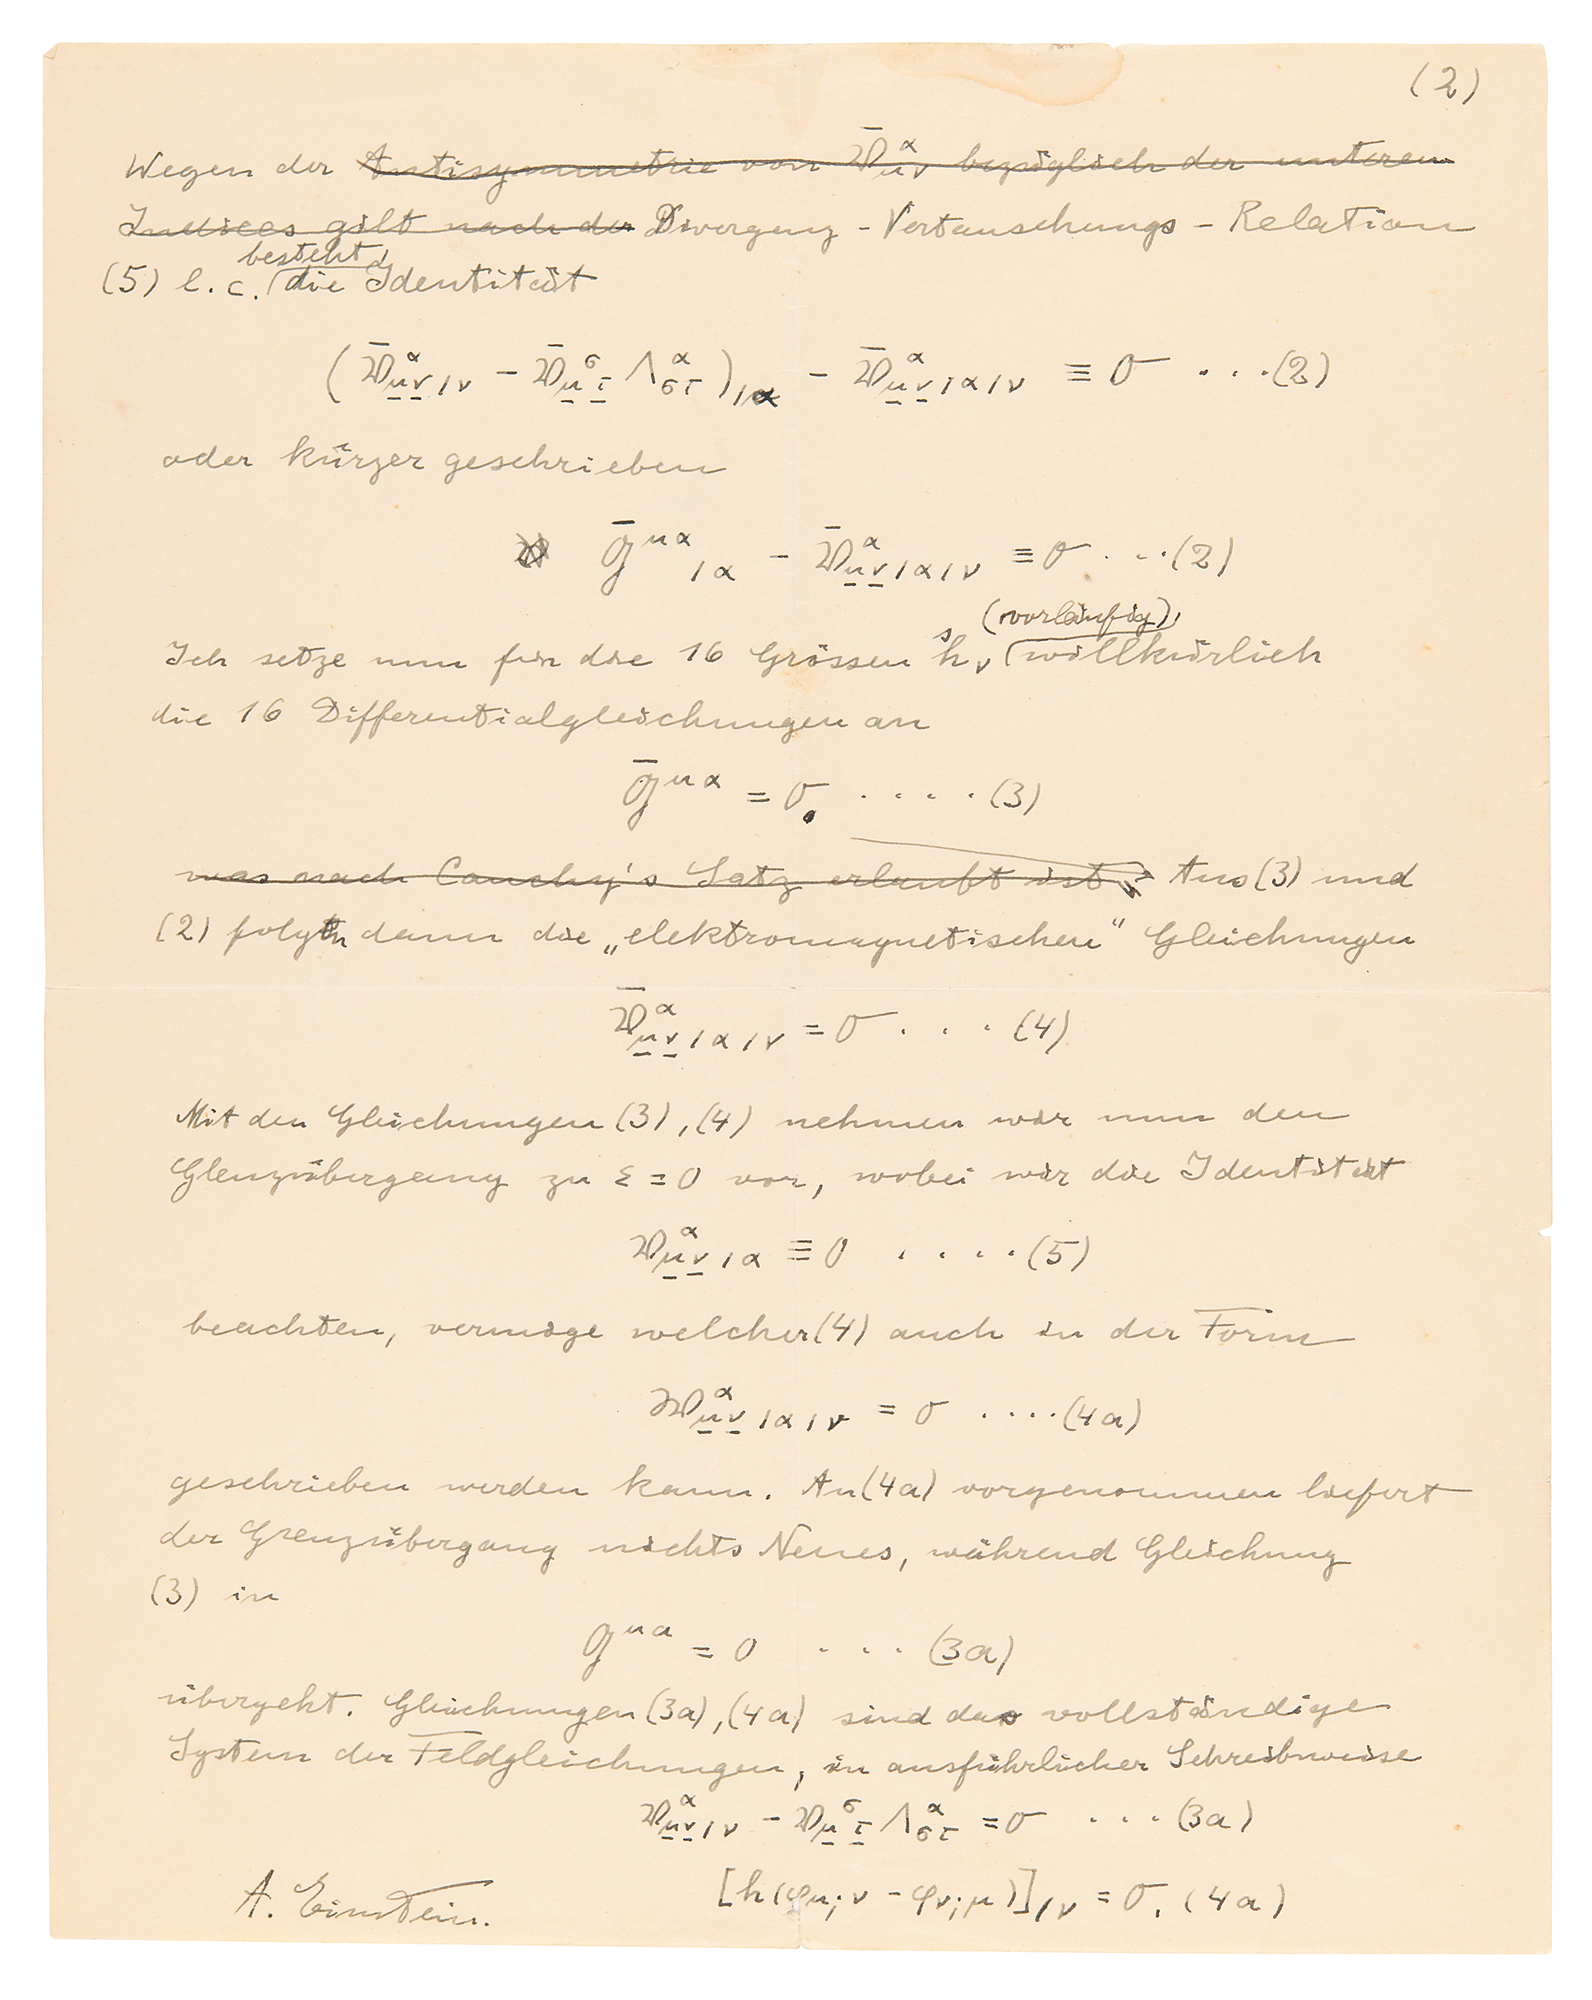 (2)
Wegen der Antisymmetrie von 𝔙̄^α_μν bezüglich der unteren
Indices gilt nach der Divergenz-Vertauschungs-Relation
besteht
(5) l.c. die Identität
(𝔙̄^α_μ̲ν̲/ν − 𝔙̄^σ_μ̲τ̲ Λ^α_στ)/α − 𝔙̄^α_μ̲ν̲/α/ν ≡ 0 ...(2)
oder kürzer geschrieben
𝔊̄^μα/α − 𝔙̄^α_μ̲ν̲/α/ν ≡ 0 ...(2)
(vorläufig)
Ich setze nun für die 16 Grössen ^s h_ν willkürlich
die 16 Differentialgleichungen an
𝔊̄^μα = 0. ....(3)
was nach Cauchy's Satz erlaubt ist. Aus (3) und
(2) folgen dann die „elektromagnetischen“ Gleichungen
𝔙̄^α_μ̲ν̲/α/ν = 0 ... (4)
Mit den Gleichungen (3), (4) nehmen wir nun den
Glenzübergang zu ε = 0 vor, wobei wir die Identität
𝔙^α_μ̲ν̲/α ≡ 0 ....(5)
beachten, vermöge welcher (4) auch in der Form
𝔙^α_μ̲ν̲/α/ν = 0 ....(4a)
geschrieben werden kann. An (4a) vorgenommen liefert
der Grenzübergang nichts Neues, während Gleichung
(3) in
𝔊^μα = 0 ... (3a)
übergeht. Gleichungen (3a), (4a) sind das vollständige
System der Feldgleichungen, in ausführlicher Schreibweise
𝔙^α_μ̲ν̲/ν − 𝔙^σ_μ̲τ̲ Λ^α_στ = 0 ... (3a)
[h(φ_μ;ν − φ_ν;μ)]/ν = 0. (4a)
A. Einstein.